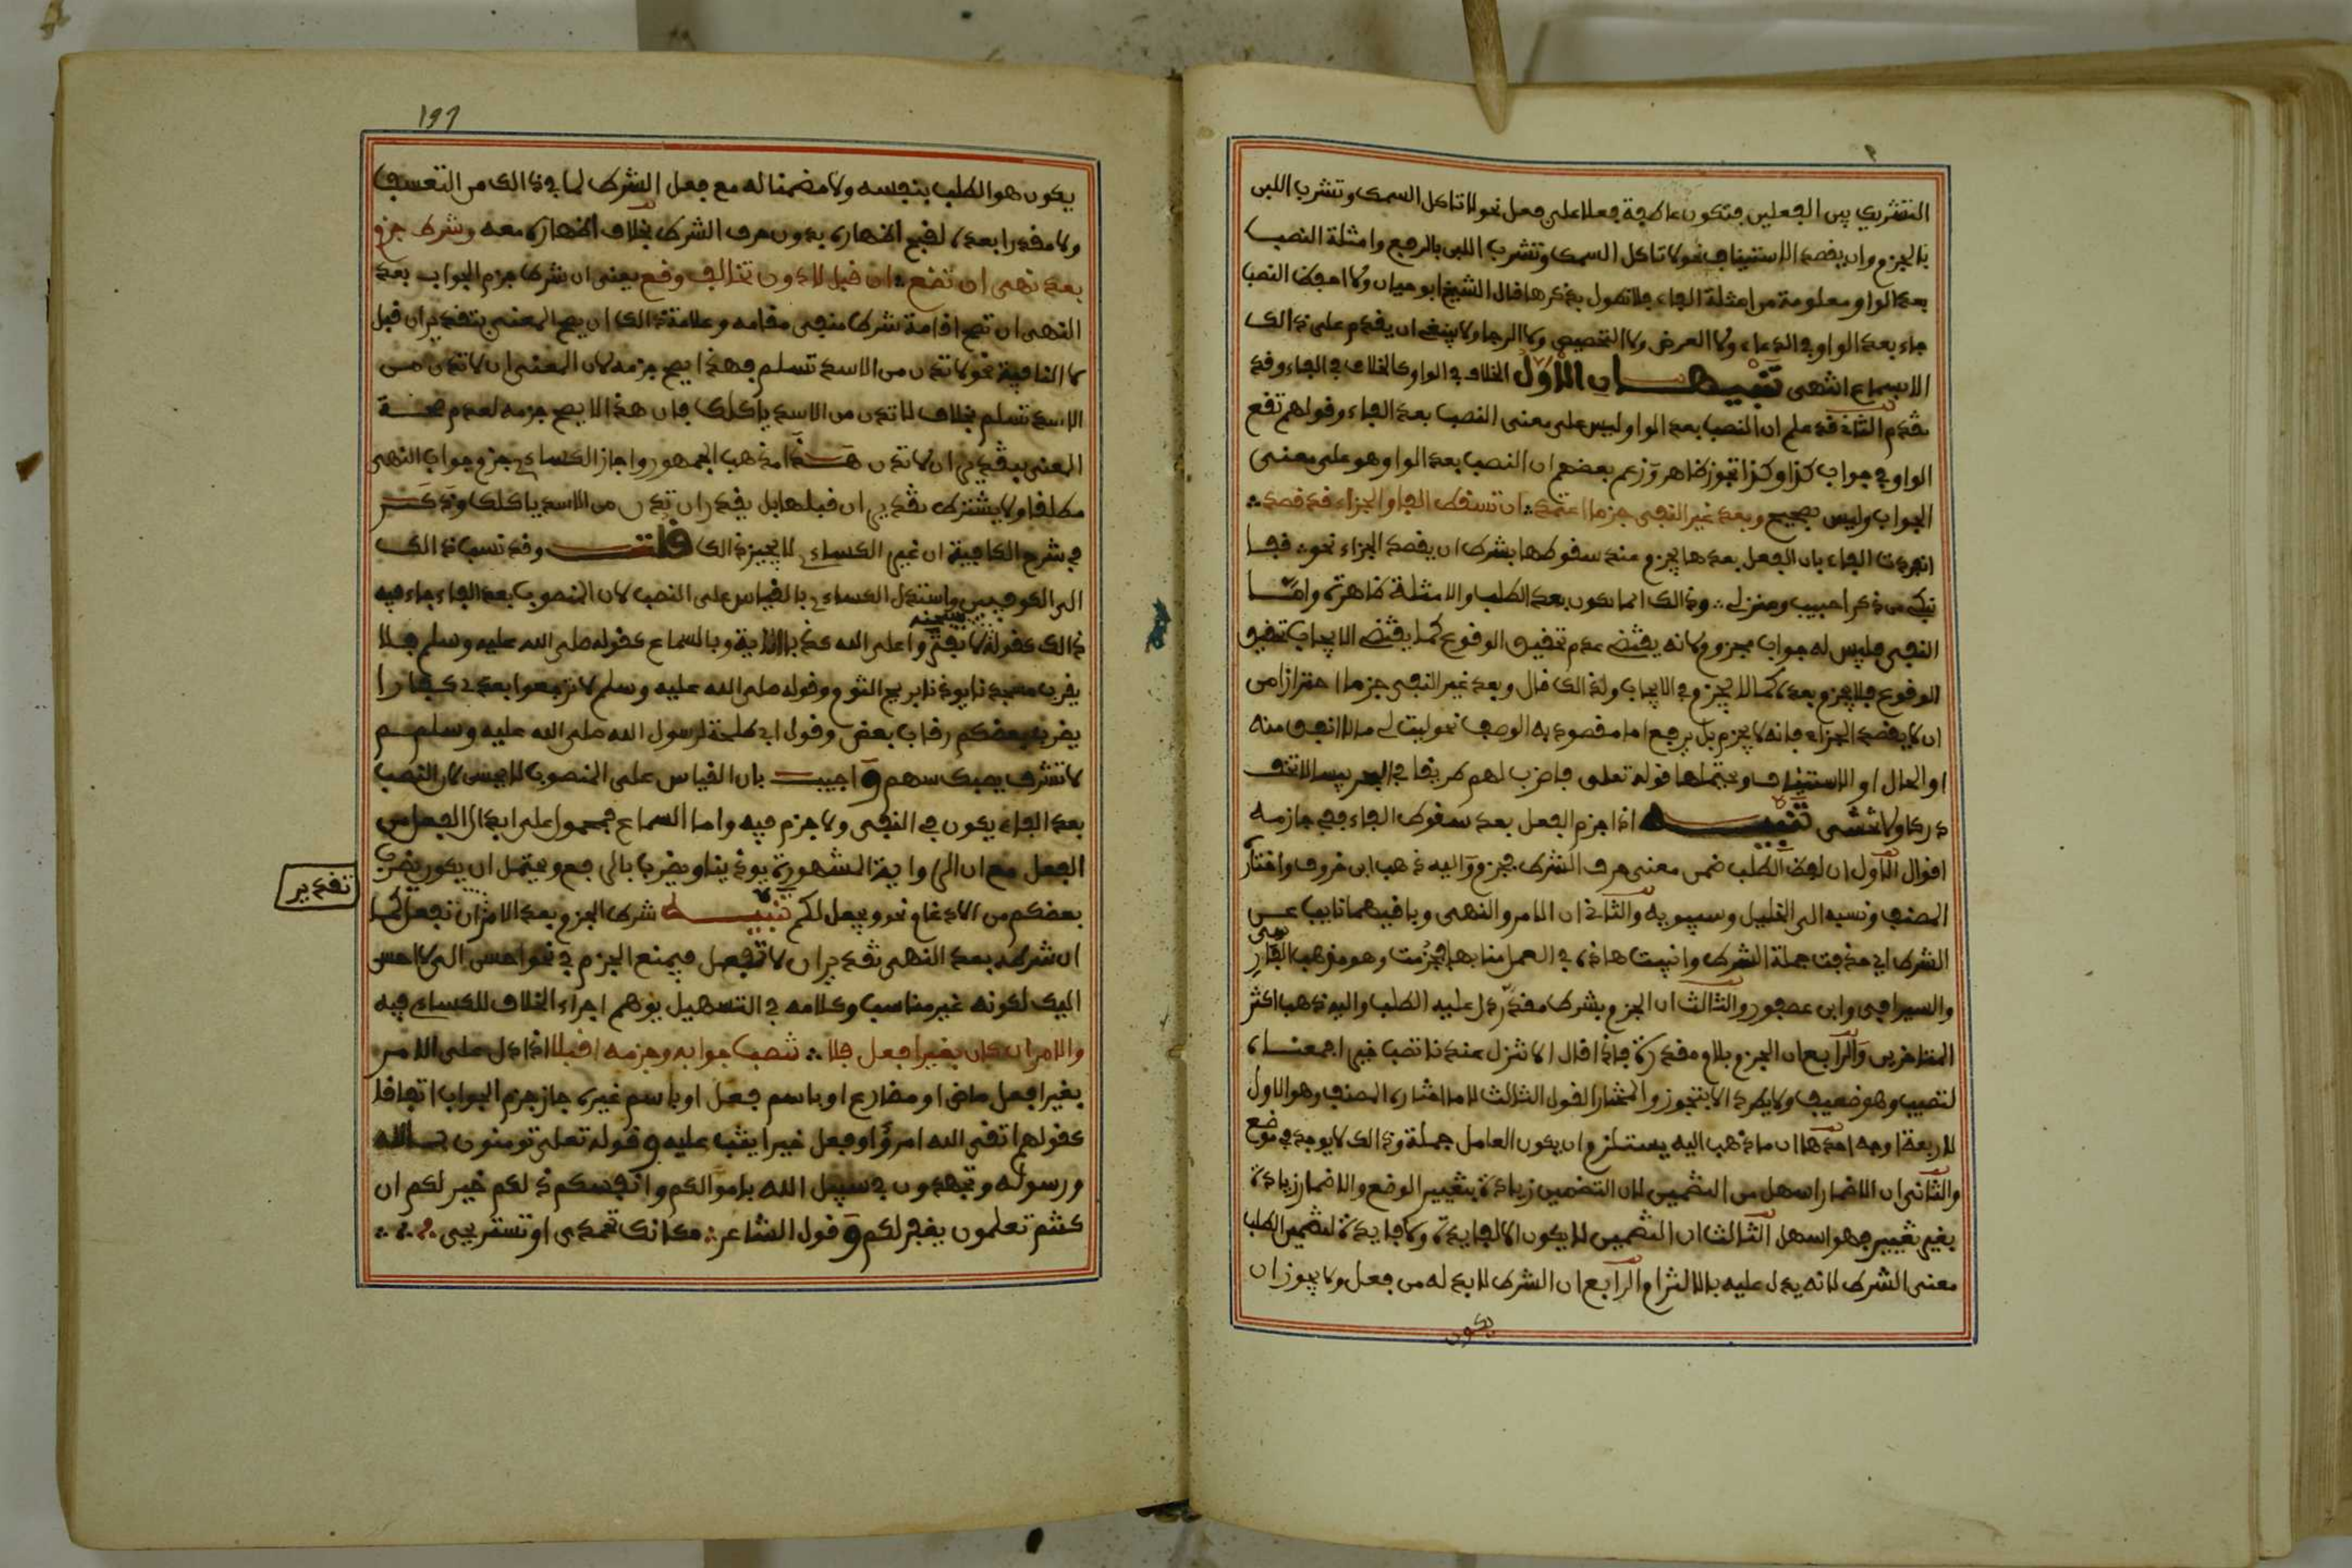 التشريك بين الفعلين فتكون عاطفة فعلا على فعل نحو لا تاكل السمك وتشرب اللبن
بالجزم وان يقصد الاستيناف نحو لا تاكل السمك وتشرب اللبن بالرفع وامثلة النصب
بعد الواو معلومة من امثلة الفاء فلا نطول بذكرها قال الشيخ ابو حيان ولا احفظ النصب
جاء بعد الواو في الدعاء ولا العرض ولا التحضيض ولا الرجا ولا ينبغي ان يقدم على ذالك
الا بسماع انتهى تنبيهـــان الاول الخلاف في الواو كالخلاف في الفاء وقد
تقدم الثاني قد علم ان النصب بعد الواو ليس على معنى النصب بعد الفاء وقولهم تقع
الواو في جواب كذا وكذا تجوز ظاهر وزعم بعضهم ان النصب بعد الواو هو على معنى
الجواب وليس بصحيح وبعد غير النفي جزما اعتمد ان تسقط الفا والجزاء قد قصد
انفردت الفاء بان الفعل بعدها يجزم عند سقوطها بشرط ان يقصد الجزاء نحو قفا
نبك من ذكرا حبيب ومنزل وذالك انما يكون بعد الطلب والامثلة ظاهرة وامـــا
النفي فليس له جواب مجزوم لانه يقتضي عدم تحقيق الوقوع كما يقتضي الايجاب تحقيق
الوقوع فلا يجزم بعده كما لا يجزم في الايجاب ولذالك قال وبعد غير النفي جزما احترازا من
ان لا يقصد الجزاء فانه لا يجزم بل يرفع اما مقصودا به الوصف نحو ليت لي مالا انفق منه
او الحال او الاستيناف ويحتملها قوله تعلى فاضرب لهم طريقا في البحر يبسا لا تخف
دركا ولا تخشى تنبيـــه اذا جزم الفعل بعد سقوط الفاء ففي جازمه
اقوال الاول ان لفظ الطلب ضمن معنى حرف الشرط فجزم واليه ذهب ابن خروف واختار
المصنف ونسبه الى الخليل وسيبويه والثاني ان الامر والنهي وباقيهما نايب عـــن
الشرط اي حذفت جملة الشرط وانيبت هاذه في العمل منابها فجزمت وهو مذهب الفارسي
والسيرافي وابن عصفور والثالث ان الجزم بشرط مقدر دل عليه الطلب واليه ذهب اكثر
المتاخرين والرابع ان الجزم بلام مقدرة فاذا قال الا تنزل عندنا تصب خيرا فمعنـــاه
لتصيب وهو ضعيف ولا يطرد الا بتجوز والمختار القول الثالث لا ما اختاره المصنف وهو الاول
لاربعة اوجه احدها ان ما ذهب اليه يستلزم ان يكون العامل جملة وذالك لا يوجد في موضع
والثاني ان الاضمار اسهل من التضمين لان التضمين زيادة بتغيير الوضع والاضمار زيادة
بغير تغيير فهو اسهل الثالث ان التضمين لا يكون الا لفايدة ولا فايدة لتضمين الطلب
معنى الشرط لانه يدل عليه بالالتزام الرابع ان الشرط لا بد له من فعل ولا يجوز ان
يكون
197
يكون هو الطلب بنفسه ولا مضمنا له مع فعل الشرط لما في ذالك من التعسف
ولا مقدرا بعده لقبح اظهاره بدون حرف الشرط بخلاف اظهاره معه وشرط جزم
بعد نهي ان تضع ان قبل لا دون تخالف وقع يعني ان شرط جزم الجواب بعد
النهي ان تصح اقامة شرط منفي مقامه وعلامة ذالك ان يصح المعنى بتقدير ان قبل
لا النافية نحو لا تدن من الاسد تسلم فهذا يصح جزمه لان المعنى ان لا تدن مـــن
الاسد تسلم بخلاف لا تدن من الاسد ياكلك فان هذا لا يصح جزمه لعدم صحـــة
المعنى بتقدير ان لا تدن هـــذا مذهب الجمهور واجاز الكسائي جزم جواب النهي
مطلقا ولا يشترط تقدير ان قبلها بل يقدر ان تدن من الاسد ياكلك وذكـــر
في شرح الكافية ان غير الكسائي لا يجيز ذالك قلتـــ وقد نسب ذالك
الى الكوفيين واستدل الكسائي بالقياس على النصب لان المنصوب بعد الفاء جاء فيه
ذالك كقوله لا تفتروا على الله كذبا الاية وبالسماع كقوله صلى الله عليه وسلم فلا
يقرب مسجدنا يوذنا بريح الثوم وقوله صلى الله عليه وسلم لا ترجعوا بعدي كفارا
يضرب بعضكم رقاب بعض وقول ابي طلحة لرسول الله صلى الله عليه وسلم
لا تشرف يصبك سهم واجيبـــ بان القياس على المنصوب لا يحسن لان النصب
بعد الفاء يكون في النفي ولا جزم فيه واما السماع فمحمول على ابدال الفعل من
الفعل مع ان الرواية المشهورة يوذينا ويضرب بالرفع ويحتمل ان يكون يضرب
تقدير
بعضكم من الادغام نحو ويجعل لكم تنبيـــه شرط الجزم بعد الامر ان تفعل كما
ان شرطه بعد النهي تقدير ان لا تفعل فيمتنع الجزم في نحو احسن الي لا احسن
اليك لكونه غير مناسب وكلامه في التسهيل يوهم اجراء الخلاف للكسائي فيه
والامر ان كان بغير افعل فلا تنصب جوابه وجزمه اقبلا اذا دل على الامر
بغير افعل ماض او مضارع او باسم فعل او باسم غيره جاز جزم الجواب اتفاقا
كقولهم اتقى الله امرؤ وفعل خيرا يثب عليه وقوله تعلى تومنون بـــالله
ورسوله وتجهدون في سبيل الله باموالكم وانفسكم ذلكم خير لكم ان
كنتم تعلمون يغفر لكم وقول الشاعر مكانك تحمدي او تستريحي